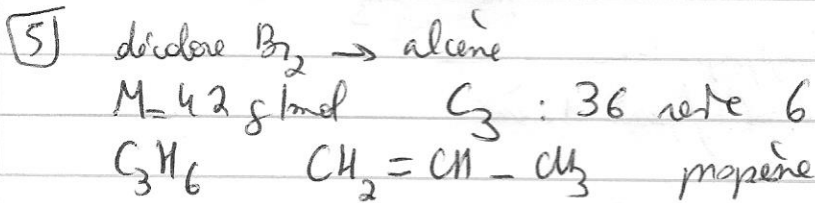 5 décolore Br₂ → alcène
M = 42 g/mol C₃ : 36 reste 6
C₃H₆ CH₂ = CH - CH₃ propène